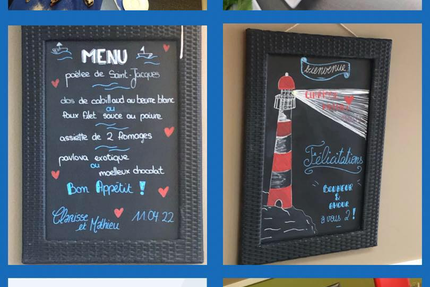 MENU
poêlée de Saint-Jacques
dos de cabillaud au beurre blanc
ou
faux filet sauce au poivre
assiette de 2 fromages
pavlova exotique
ou
moelleux chocolat
Bon Appétit !
Clarisse
et Mathieu
11.04.22
bienvenue
Félicitations
BONHEUR
&
AMOUR
à vous 2 !